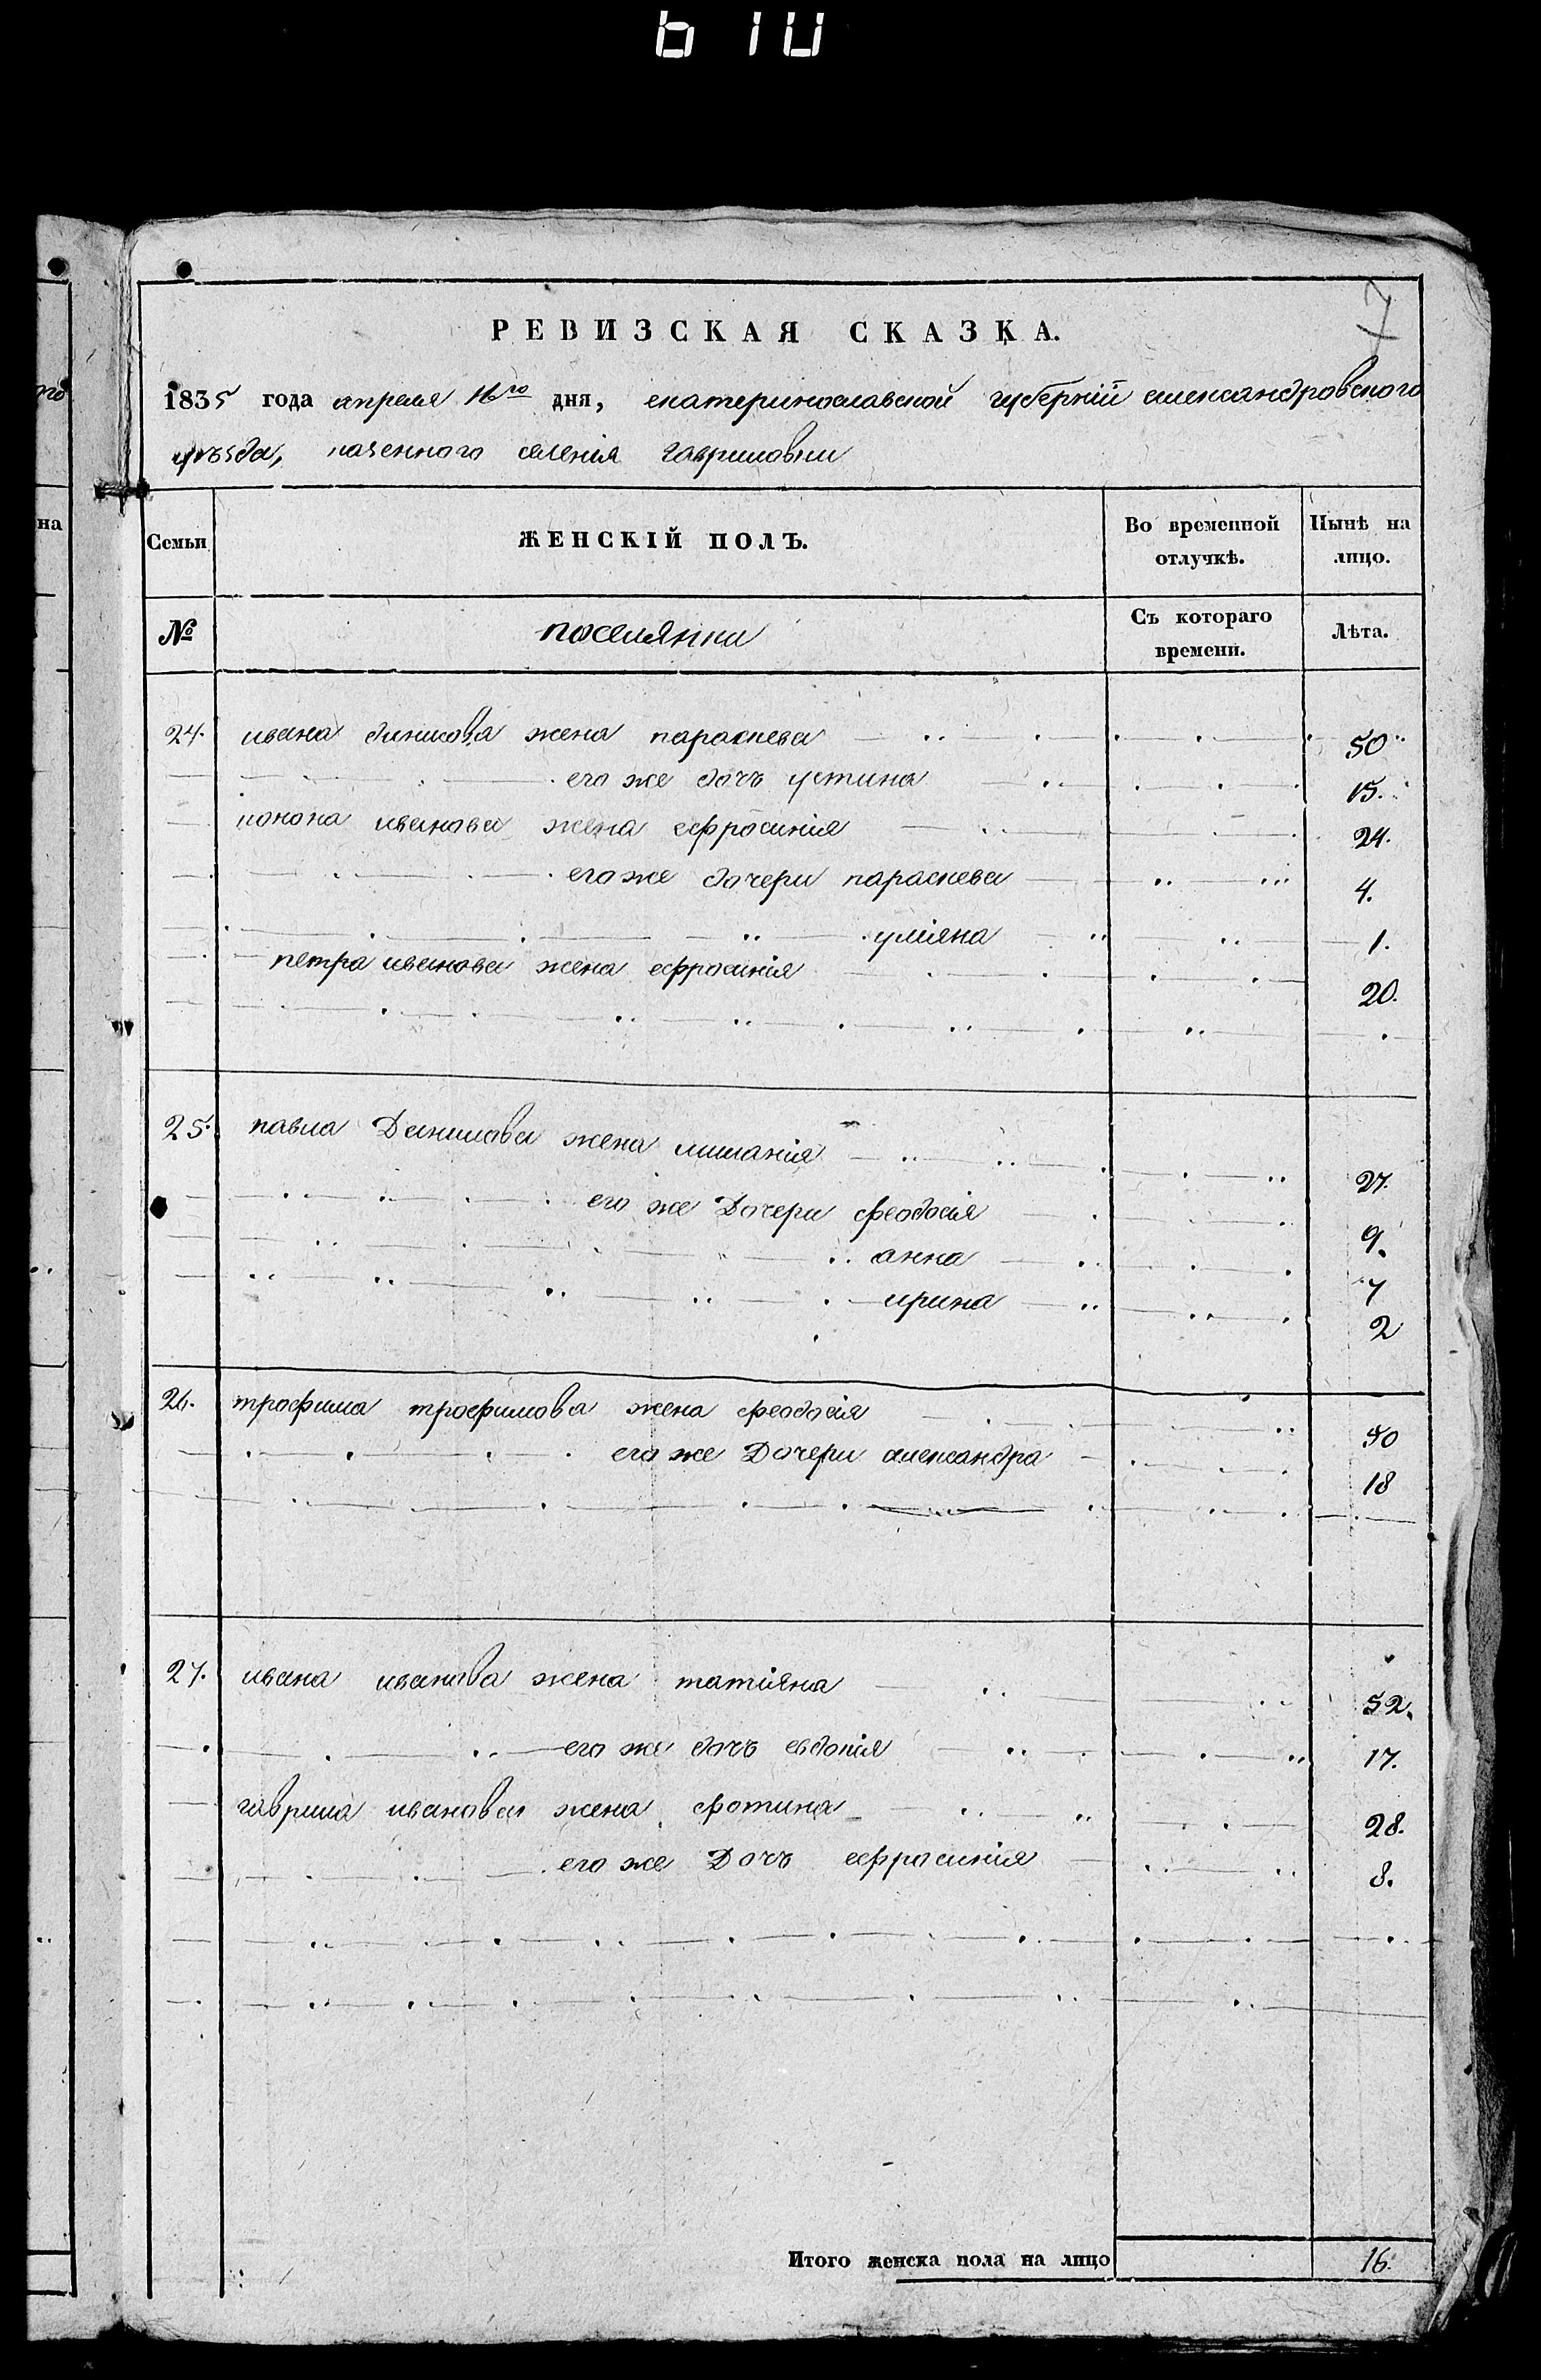 610
РЕВИЗСКАЯ СКАЗКА.
1835 года апреля 16го дня, екатеринославской губерніи александровского
уѣзда, казенного селенія гавриловки
Семьи
ЖЕНСКІЙ ПОЛЪ.
Во временной отлучкѣ.
Нынѣ на лицо.
№
поселянки
Съ котораго времени.
Лѣта.
24. ивана жена параскева 50
его же дочъ устина 15.
иванова жена ефросинія 24.
его же дочери параскева 4.
уліяна 1.
петра иванова жена ефросинія 20.
25. павла Данилова жена 27.
его же Дочери феодосія 9.
анна 7
ирина 2
26. трофима трофимова жена феодосія 50
его же Дочери александра 18
27. ивана иванова жена татіяна 52.
его же дочъ евдокія 17.
гаврила иванова жена фотина 28.
его же Дочъ ефросинія 8.
Итого женска пола на лицо 16.
на